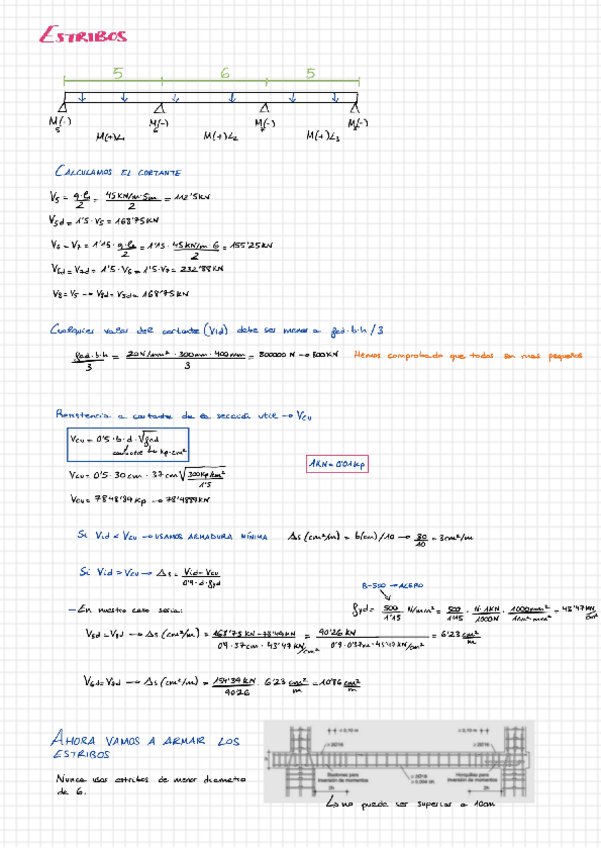 ESTRIBOS
5 6 5
M(-) M(-) M(-) M(-)
5 6 7 8
M(+)L1 M(+)L2 M(+)L3
CALCULAMOS EL CORTANTE
V5 = q·l/2 = 45KN/m·5m/2 = 112'5KN
V5d = 1'5·V5 = 168'75KN
V6 = V7 = 1'15·q·l/2 = 1'15·45KN/m·6/2 = 155'25KN
V6d = V7d = 1'5·V6 = 1'5·V7 = 232'88KN
V8 = V5 → V8d = V5d = 168'75KN
Cualquier valor del cortante (Vid) debe ser menor a fcd·b·h/3
fcd·b·h/3 = 20N/mm²·300mm·400mm/3 = 800000 N → 800KN Hemos comprobado que todos son mas pequeños
Resistencia a cortante de la sección util → Vcu
Vcu = 0'5·b·d·√fcd
kp·cm²
Vcu = 0'5·30cm·37cm √300kp/cm²/1'5
1KN = 0'01kp
Vcu = 7848'89kp → 78'4889KN
Si Vid < Vcu → USAMOS ARMADURA MÍNIMA As (cm²/m) = b(cm)/10 → 30/10 = 3cm²/m
Si Vid > Vcu → As = Vid-Vcu/0'9·d·fyd
B-500 → ACERO
- En nuestro caso seria:
fyd = 500/1'15 N/mm² = 500/1'15 · N·1KN/1000N · 1000mm²/1m²·mm² = 43'47 KN/cm²
V5d = V8d → As (cm²/m) = 168'75KN-78'49KN/0'9·37cm·43'47KN/cm² = 90'26KN/0'9·0'37m·43'47KN/cm² = 6'23 cm²/m
V6d = V7d → As (cm²/m) = 154'39KN/90'26 · 6'23 cm²/m = 10'86 cm²/m
AHORA VAMOS A ARMAR LOS
ESTRIBOS
Nunca usar estribos de menor diametro
de 6.
≤ 0,10 m ≤ 0,10 m
≥ 2Ø16 ≥ 2Ø16
Bastones para
inversión de momentos
Horquillas para
inversión de momentos
2h 2h
→ no puede ser superior a 10cm